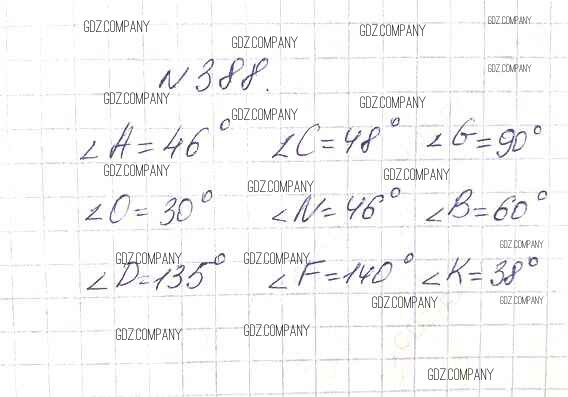 GDZ.COMPANY GDZ.COMPANY GDZ.COMPANY GDZ.COMPANY
N 388. GDZ.COMPANY
GDZ.COMPANY GDZ.COMPANY GDZ.COMPANY
∠A=46° ∠C=48° ∠G=90°
GDZ.COMPANY GDZ.COMPANY GDZ.COMPANY
∠O=30° ∠N=46° ∠B=60°
GDZ.COMPANY GDZ.COMPANY GDZ.COMPANY
∠D=135° ∠F=140° ∠K=38°
GDZ.COMPANY GDZ.COMPANY
GDZ.COMPANY GDZ.COMPANY
GDZ.COMPANY